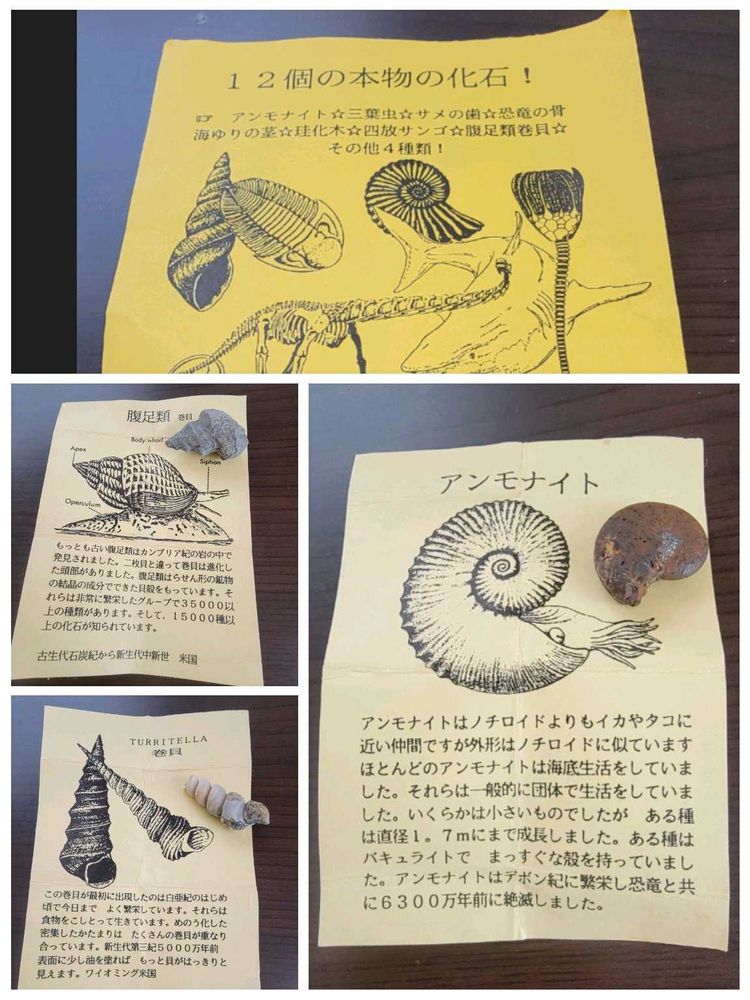 12個の本物の化石!
☞ アンモナイト☆三葉虫☆サメの歯☆恐竜の骨
海ゆりの茎☆珪化木☆四放サンゴ☆腹足類巻貝☆
その他4種類!
腹足類 巻貝
Body whorl
Apex
Siphon
Operculum
もっとも古い腹足類はカンブリア紀の岩の中で
発見されました。二枚貝と違って巻貝は進化し
た頭部がありました。腹足類はらせん形の鉱物
の結晶の成分でできた貝殻をもっています。そ
れらは非常に繁栄したグループで35000以
上の種類があります。そして、15000種以
上の化石が知られています。
古生代石炭紀から新生代中新世 米国
TURRITELLA
巻貝
この巻貝が最初に出現したのは白亜紀のはじめ
頃で今日まで よく繁栄しています。それらは
食物をこしとって生きています。めのう化した
密集したかたまりは たくさんの巻貝が重なり
合っています。新生代第三紀5000万年前
表面に少し油を塗れば もっと貝がはっきりと
見えます。ワイオミング米国
アンモナイト
アンモナイトはノチロイドよりもイカやタコに
近い仲間ですが外形はノチロイドに似ています
ほとんどのアンモナイトは海底生活をしていま
した。それらは一般的に団体で生活をしていま
した。いくらかは小さいものでしたが ある種
は直径1。7mにまで成長しました。ある種は
バキュライトで まっすぐな殻を持っていまし
た。アンモナイトはデボン紀に繁栄し恐竜と共
に6300万年前に絶滅しました。